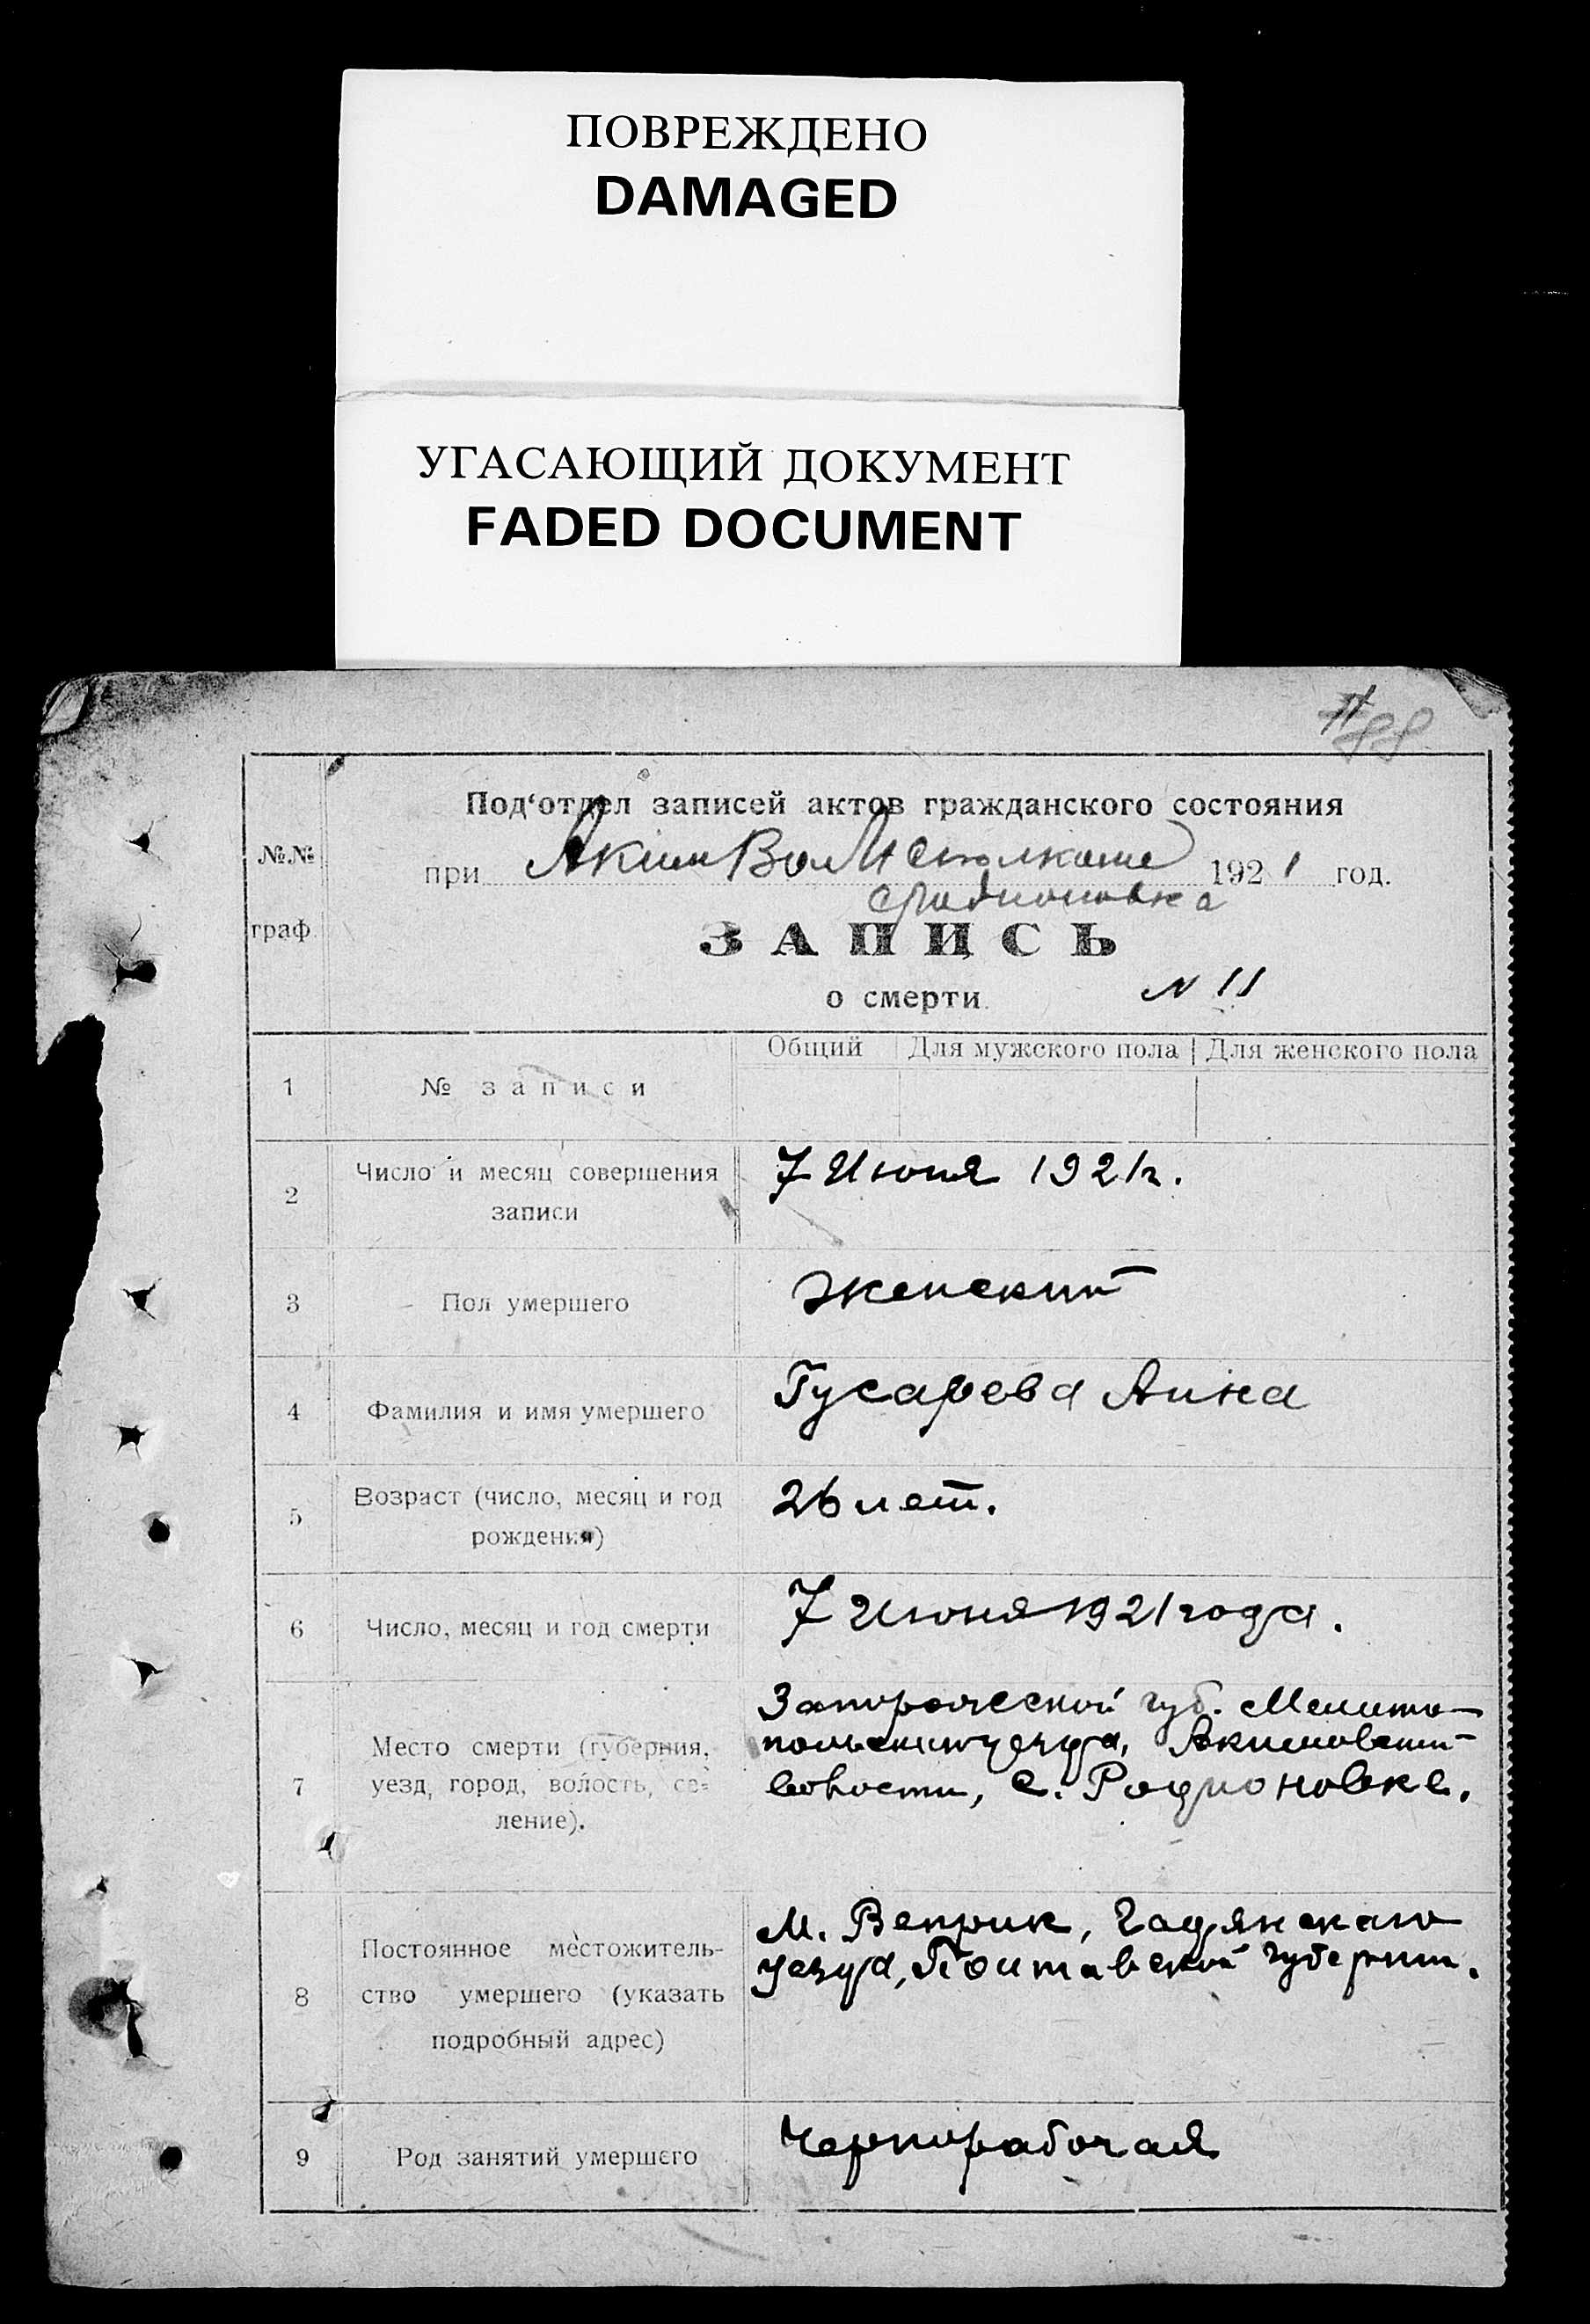 ПОВРЕЖДЕНО
DAMAGED
УГАСАЮЩИЙ ДОКУМЕНТ
FADED DOCUMENT
88
№№ граф.
Под‘отдел записей актов гражданского состояния
при АкимВолИсполкоме 1921 год.
с Родионовка
ЗАПИСЬ
о смерти. N 11
Общий Для мужского пола Для женского пола
1 № записи
2 Число и месяц совершения
записи
7 Июня 1921г.
3 Пол умершего
женский
4 Фамилия и имя умершего
Гусарева Анна
5 Возраст (число, месяц и год
рождения)
26 лет.
6 Число, месяц и год смерти
7 Июня 1921 года.
7 Место смерти (губерния,
уезд, город, волость, се-
ление).
Запорожской губ. Мелито-
польского уезда, Акимовской
волости, с. Родионовке.
8 Постоянное местожитель-
ство умершего (указать
подробный адрес)
М. Веприк, Гадянскаго
уезда, Полтавской губернии.
9 Род занятий умершего
Чернорабочая